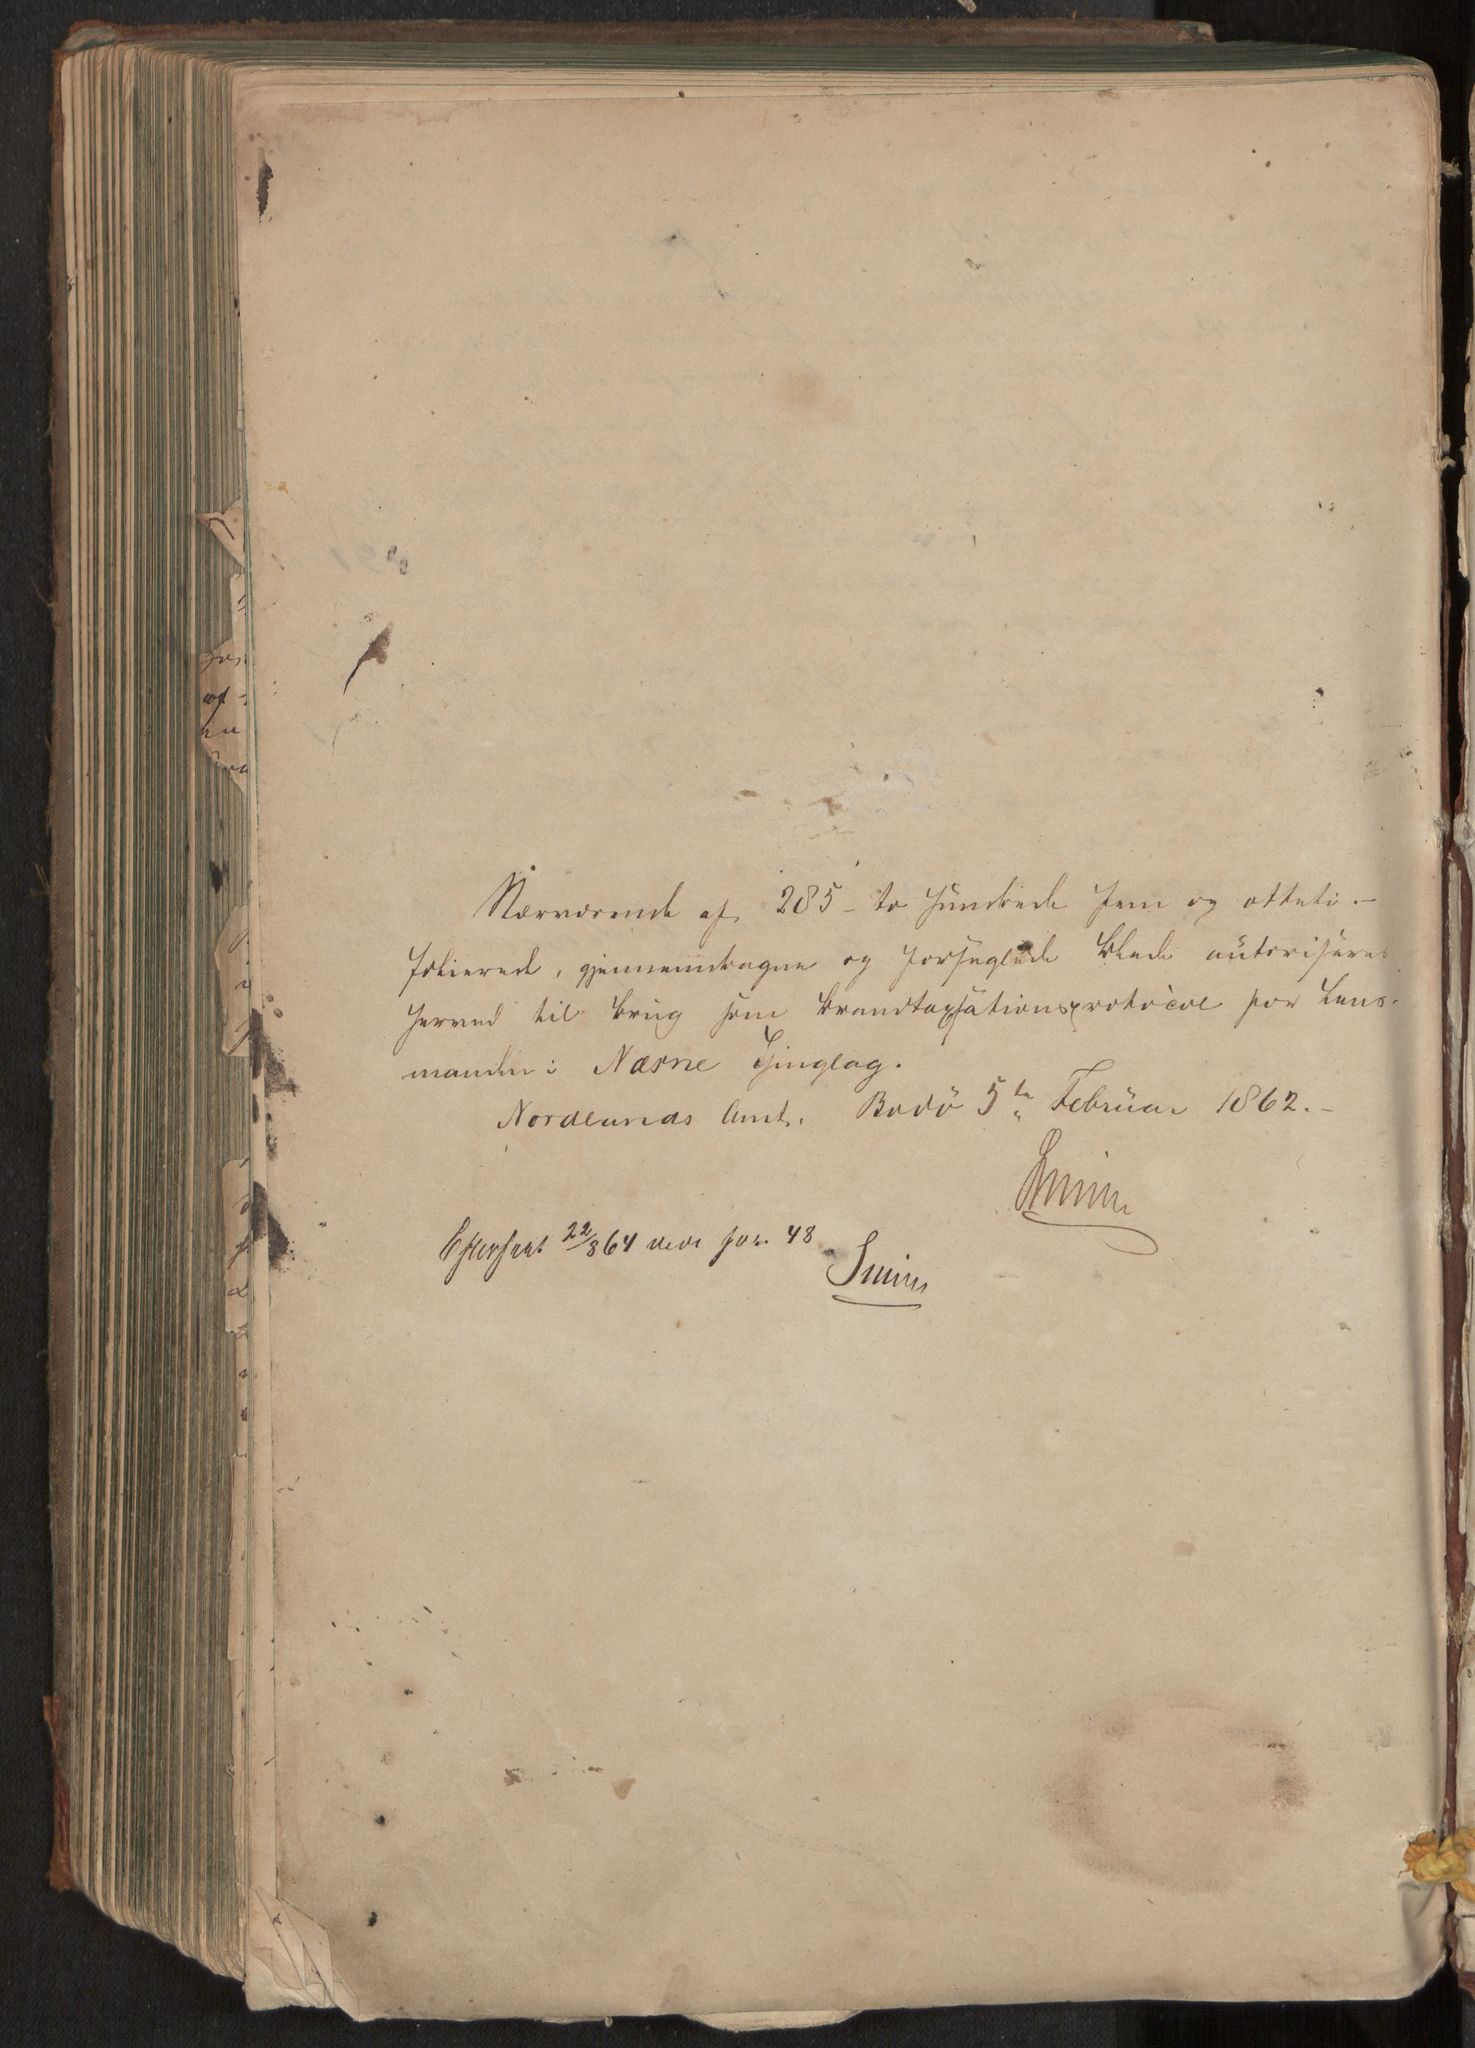 Nærværende af 285 - to hundrede fem og otteti. -
folierede, gjennemdragne og forseglede Blade autoriseres
herved til Brug som Brandtaxationsprotocol for Lens-
manden i Næsne Thinglag.
Nordlands Amt. Bodö 5te Februar 1862. -
Efterseet 22/8 64 ved fol. 48